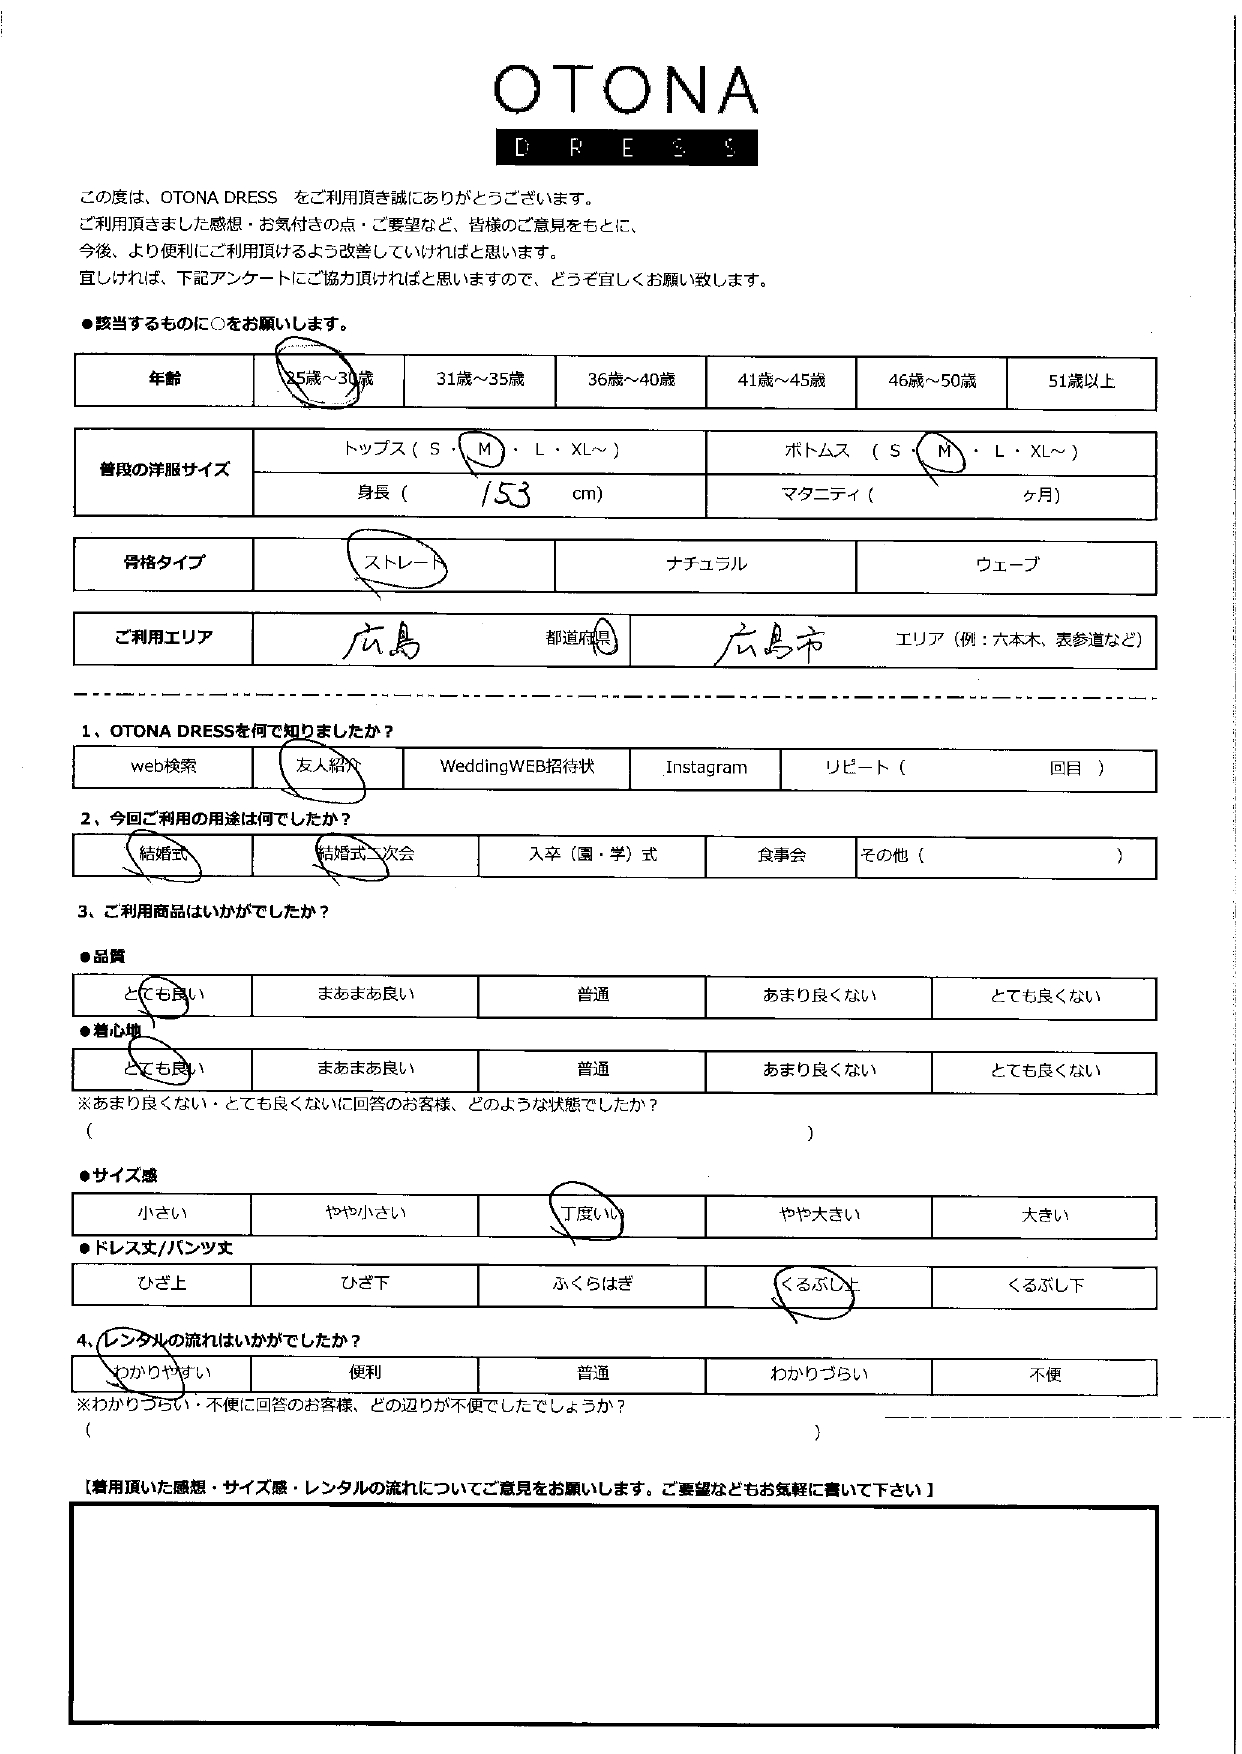 OTONA
DRESS
この度は、OTONA DRESS をご利用頂き誠にありがとうございます。
ご利用頂きました感想・お気付きの点・ご要望など、皆様のご意見をもとに、
今後、より便利にご利用頂けるよう改善していければと思います。
宜しければ、下記アンケートにご協力頂ければと思いますので、どうぞ宜しくお願い致します。
●該当するものに○をお願いします。
年齢 25歳～30歳 31歳～35歳 36歳～40歳 41歳～45歳 46歳～50歳 51歳以上
普段の洋服サイズ トップス ( S ・ M ・ L ・ XL～ ) ボトムス ( S ・ M ・ L ・ XL～ )
身長 ( 153 cm) マタニティ ( ヶ月)
骨格タイプ ストレート ナチュラル ウェーブ
ご利用エリア 広島 都道府県 広島市 エリア（例：六本木、表参道など）
1、OTONA DRESSを何で知りましたか？
web検索 友人紹介 WeddingWEB招待状 Instagram リピート ( 回目 )
2、今回ご利用の用途は何でしたか？
結婚式 結婚式二次会 入卒（園・学）式 食事会 その他 ( )
3、ご利用商品はいかがでしたか？
●品質
とても良い まあまあ良い 普通 あまり良くない とても良くない
●着心地
とても良い まあまあ良い 普通 あまり良くない とても良くない
※あまり良くない・とても良くないに回答のお客様、どのような状態でしたか？
( )
●サイズ感
小さい やや小さい 丁度いい やや大きい 大きい
●ドレス丈/パンツ丈
ひざ上 ひざ下 ふくらはぎ くるぶし上 くるぶし下
4、レンタルの流れはいかがでしたか？
わかりやすい 便利 普通 わかりづらい 不便
※わかりづらい・不便に回答のお客様、どの辺りが不便でしたでしょうか？
( )
【着用頂いた感想・サイズ感・レンタルの流れについてご意見をお願いします。ご要望などもお気軽に書いて下さい】